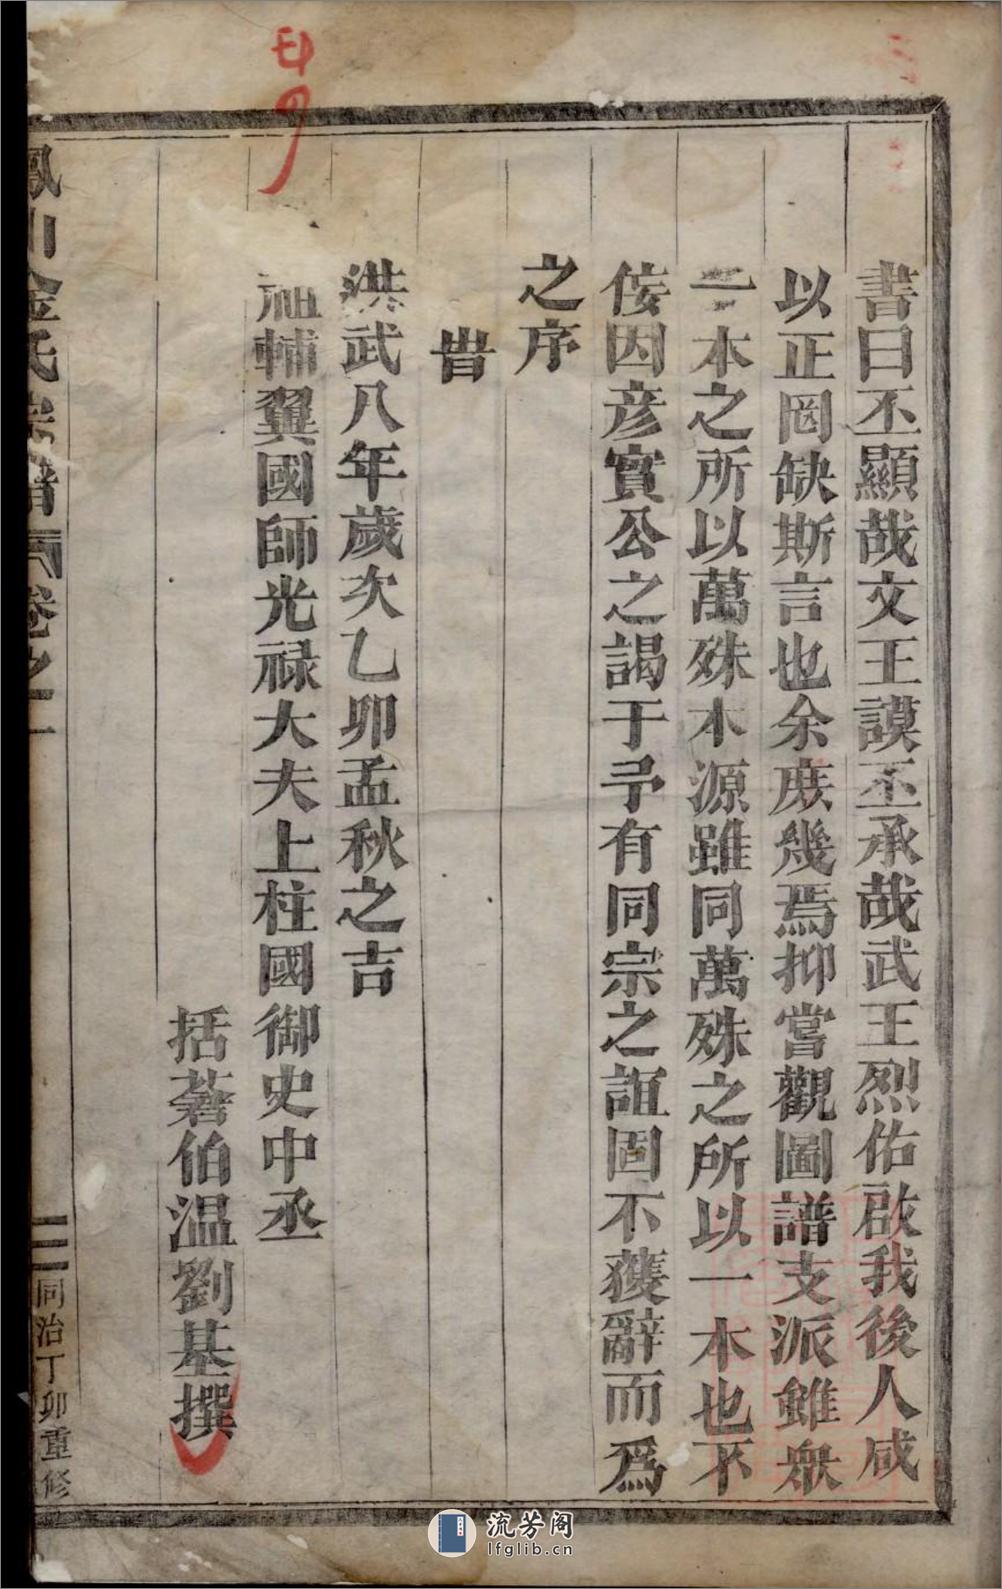 書曰丕顯哉文王謨丕承哉武王烈佑啟我後人咸
以正罔缺斯言也余庶幾焉抑當觀圖譜支派雖衆
一本之所以萬殊木源雖同萬殊之所以一本也不
佞因彦實公之謁于予有同宗之誼固不獲辭而爲
之序
旹
洪武八年歲次乙卯孟秋之吉
祖輔翼國師光禄大夫上柱國御史中丞
括蒼伯温劉基撰
鳳山金氏宗譜 卷之一
三 同治丁卯重修
流芳阁
lfglib.cn